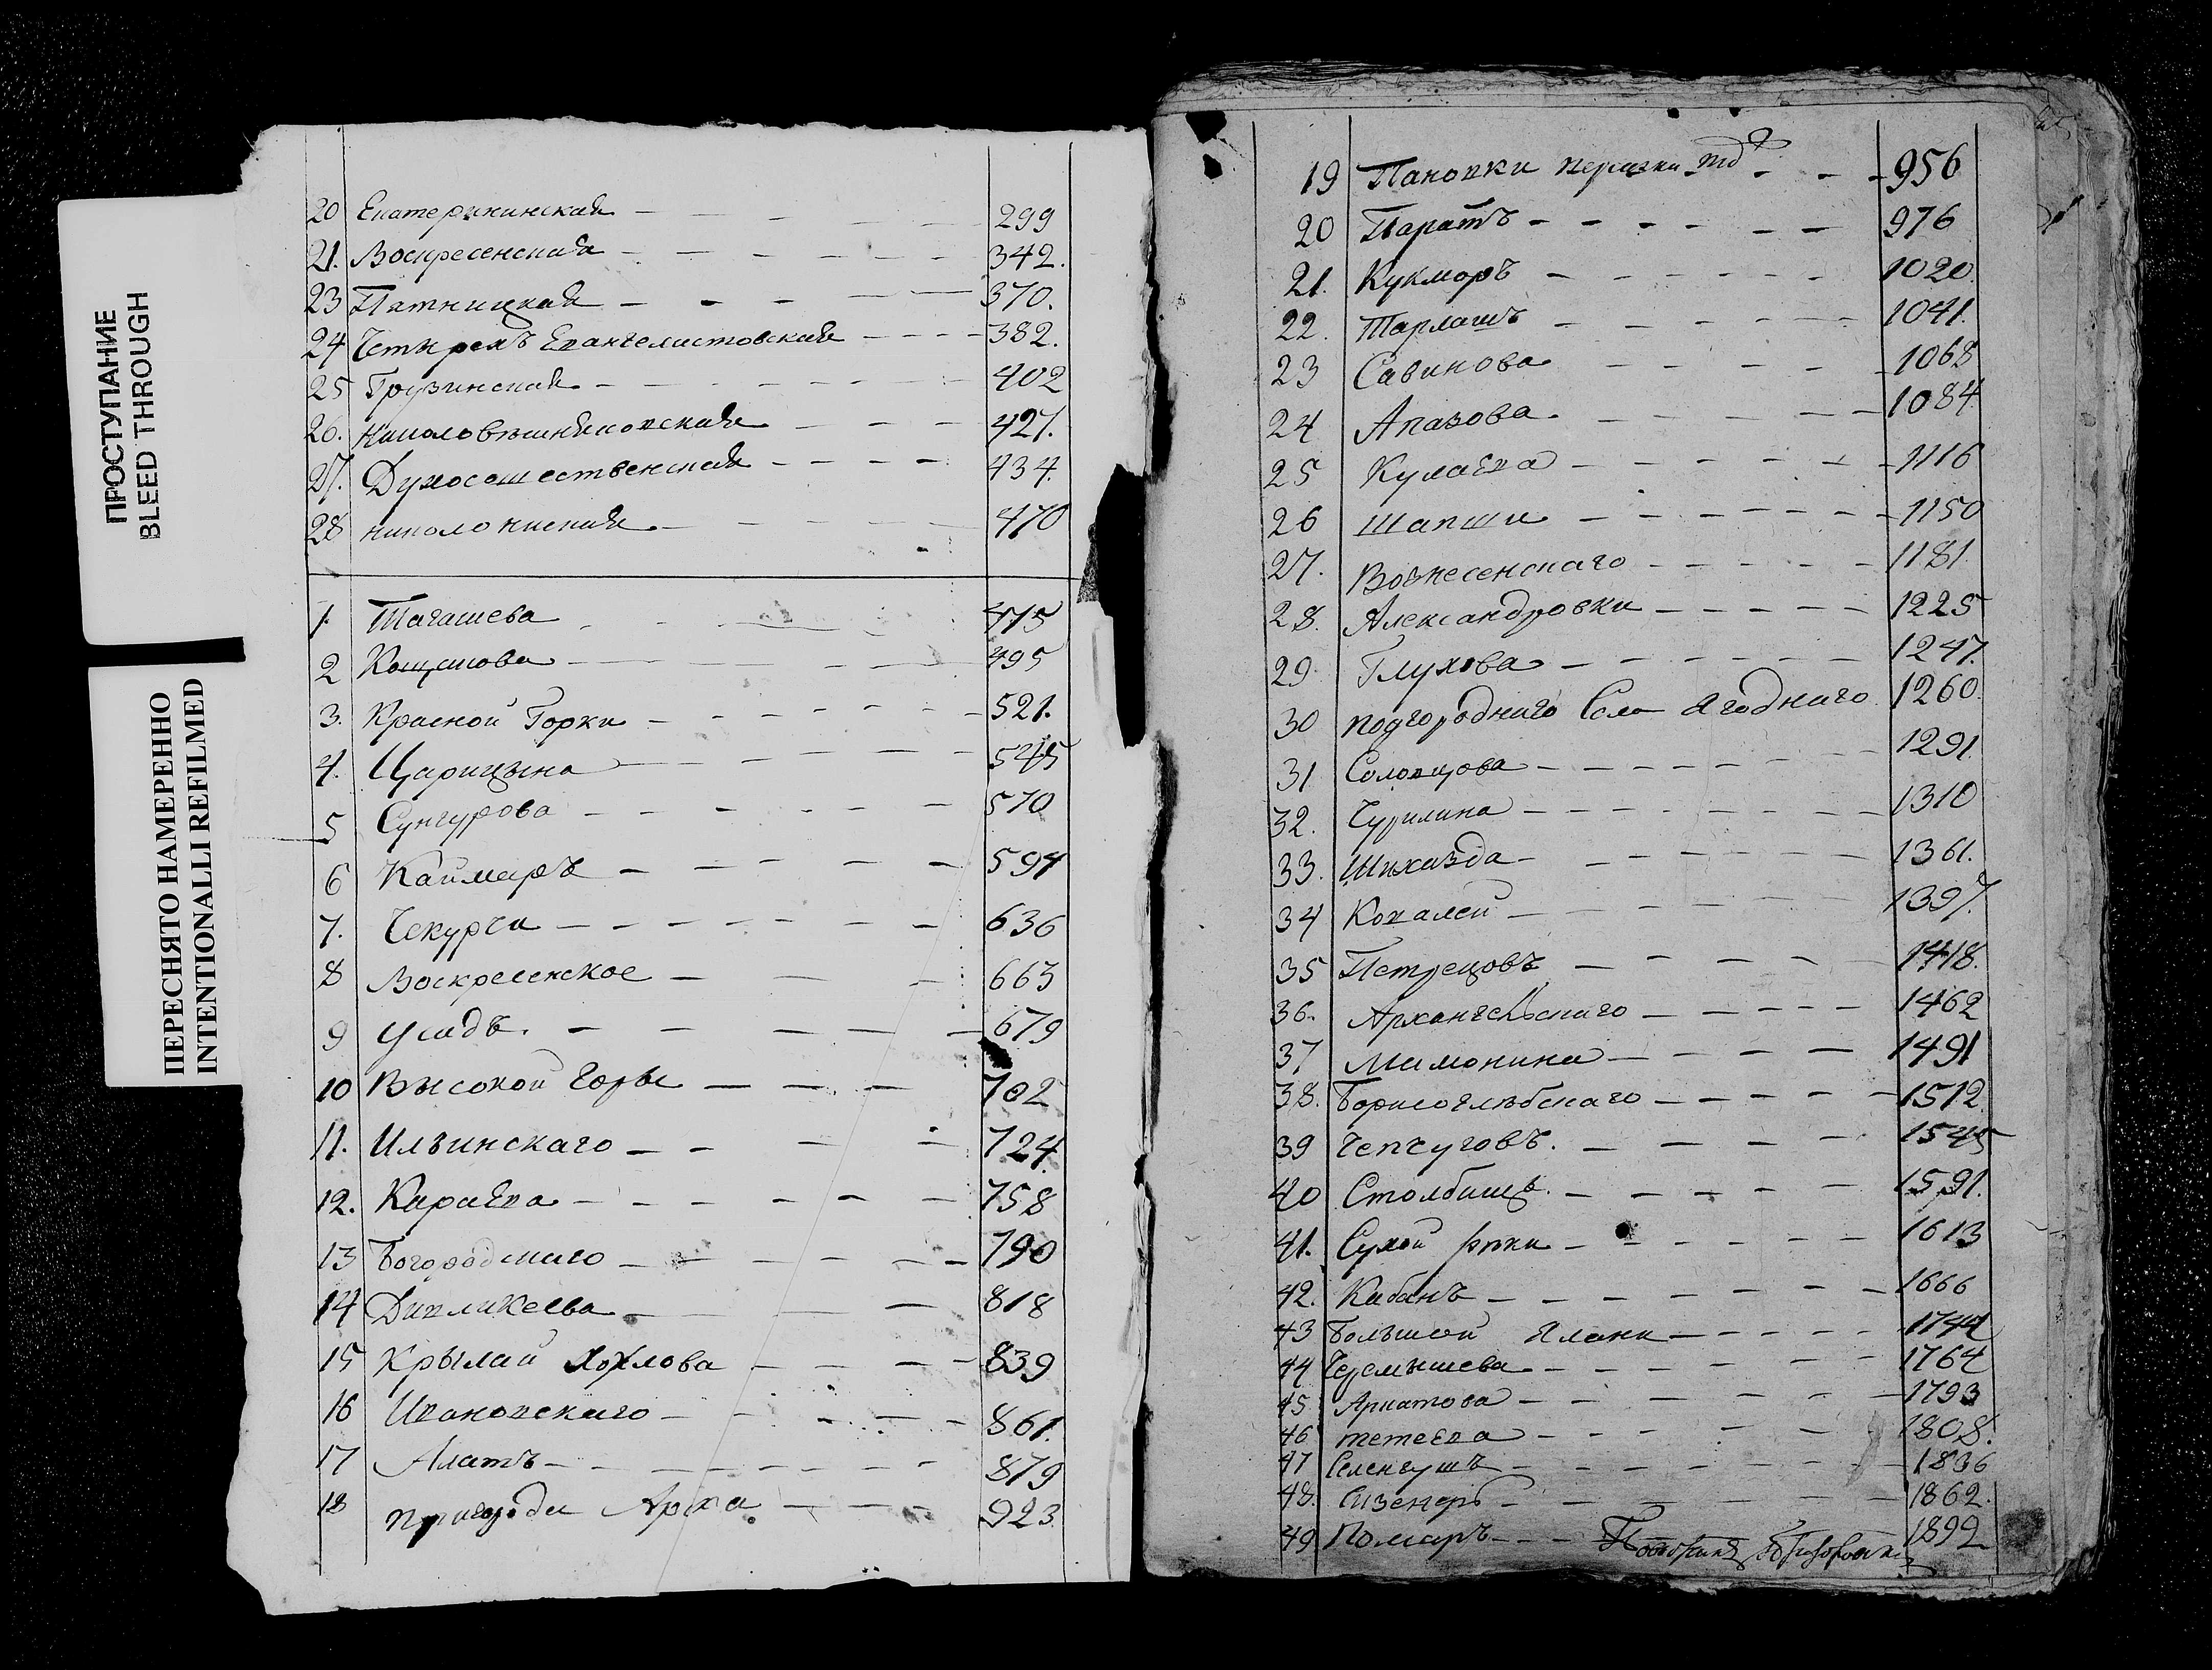 ПРОСТУПАНИЕ
BLEED THROUGH
ПЕРЕСНЯТО НАМЕРЕННО
INTENTIONALLI REFILMED
20 Екатерининская 299
21. Воскресенская 342.
23 Пятницкая 370.
24 Четырехъ Евангелистовская 382.
25 Грузинская 402
26. Николовѣшняковская 427.
27. Духосошественская 434.
28 николо ниская 470
1. Тагашева 475
2 Кощакова 495
3. Красной Горки 521.
4. Царицына 545
5 Сунгурова 570
6 Каймаръ 594
7. Чекурчи 636
8 Воскресенское 663
9 Усадъ. 679
10 Высокой Горы 702
11. Ильинскаго 724.
12. Караева 758
13 Богородскаго 790
14 Дивликеева 818
15 Крылай Хохлова 839
16 Ивановскаго 861.
17 Алатъ 879
18 пригорода Арска 923
19 Пановки 956
20 Паратъ 976
21. Кукморъ 1020
22. Тарлашъ 1041.
23 Савинова 1068
24 Апазова 1084
25 Кулаева 1116
26 Шапши 1150
27. Вознесенскаго 1181
28. Александровки 1225
29 Глухова 1247.
30 подгороднаго Села Ягоднаго 1260.
31 Соловцова 1291
32. Чурилина 1310
33. Шихазда 1361.
34 Ковалей 1397.
35 Петрецовъ 1418.
36. Архангельскаго 1462
37 Мамонина 1491
38. Борисоглѣбскаго 1512.
39 Чепчуговъ. 1545
40 Столбищъ. 1591.
41. Сухой рѣки 1613
42. Кабанъ 1666
43 Большой Елани 1744
44 Черемышева 1764
45 Арнатова 1793
46 тетеева 1808.
47 Селенгушъ 1836
48. Сизенеръ 1862.
49 Помаръ 1892